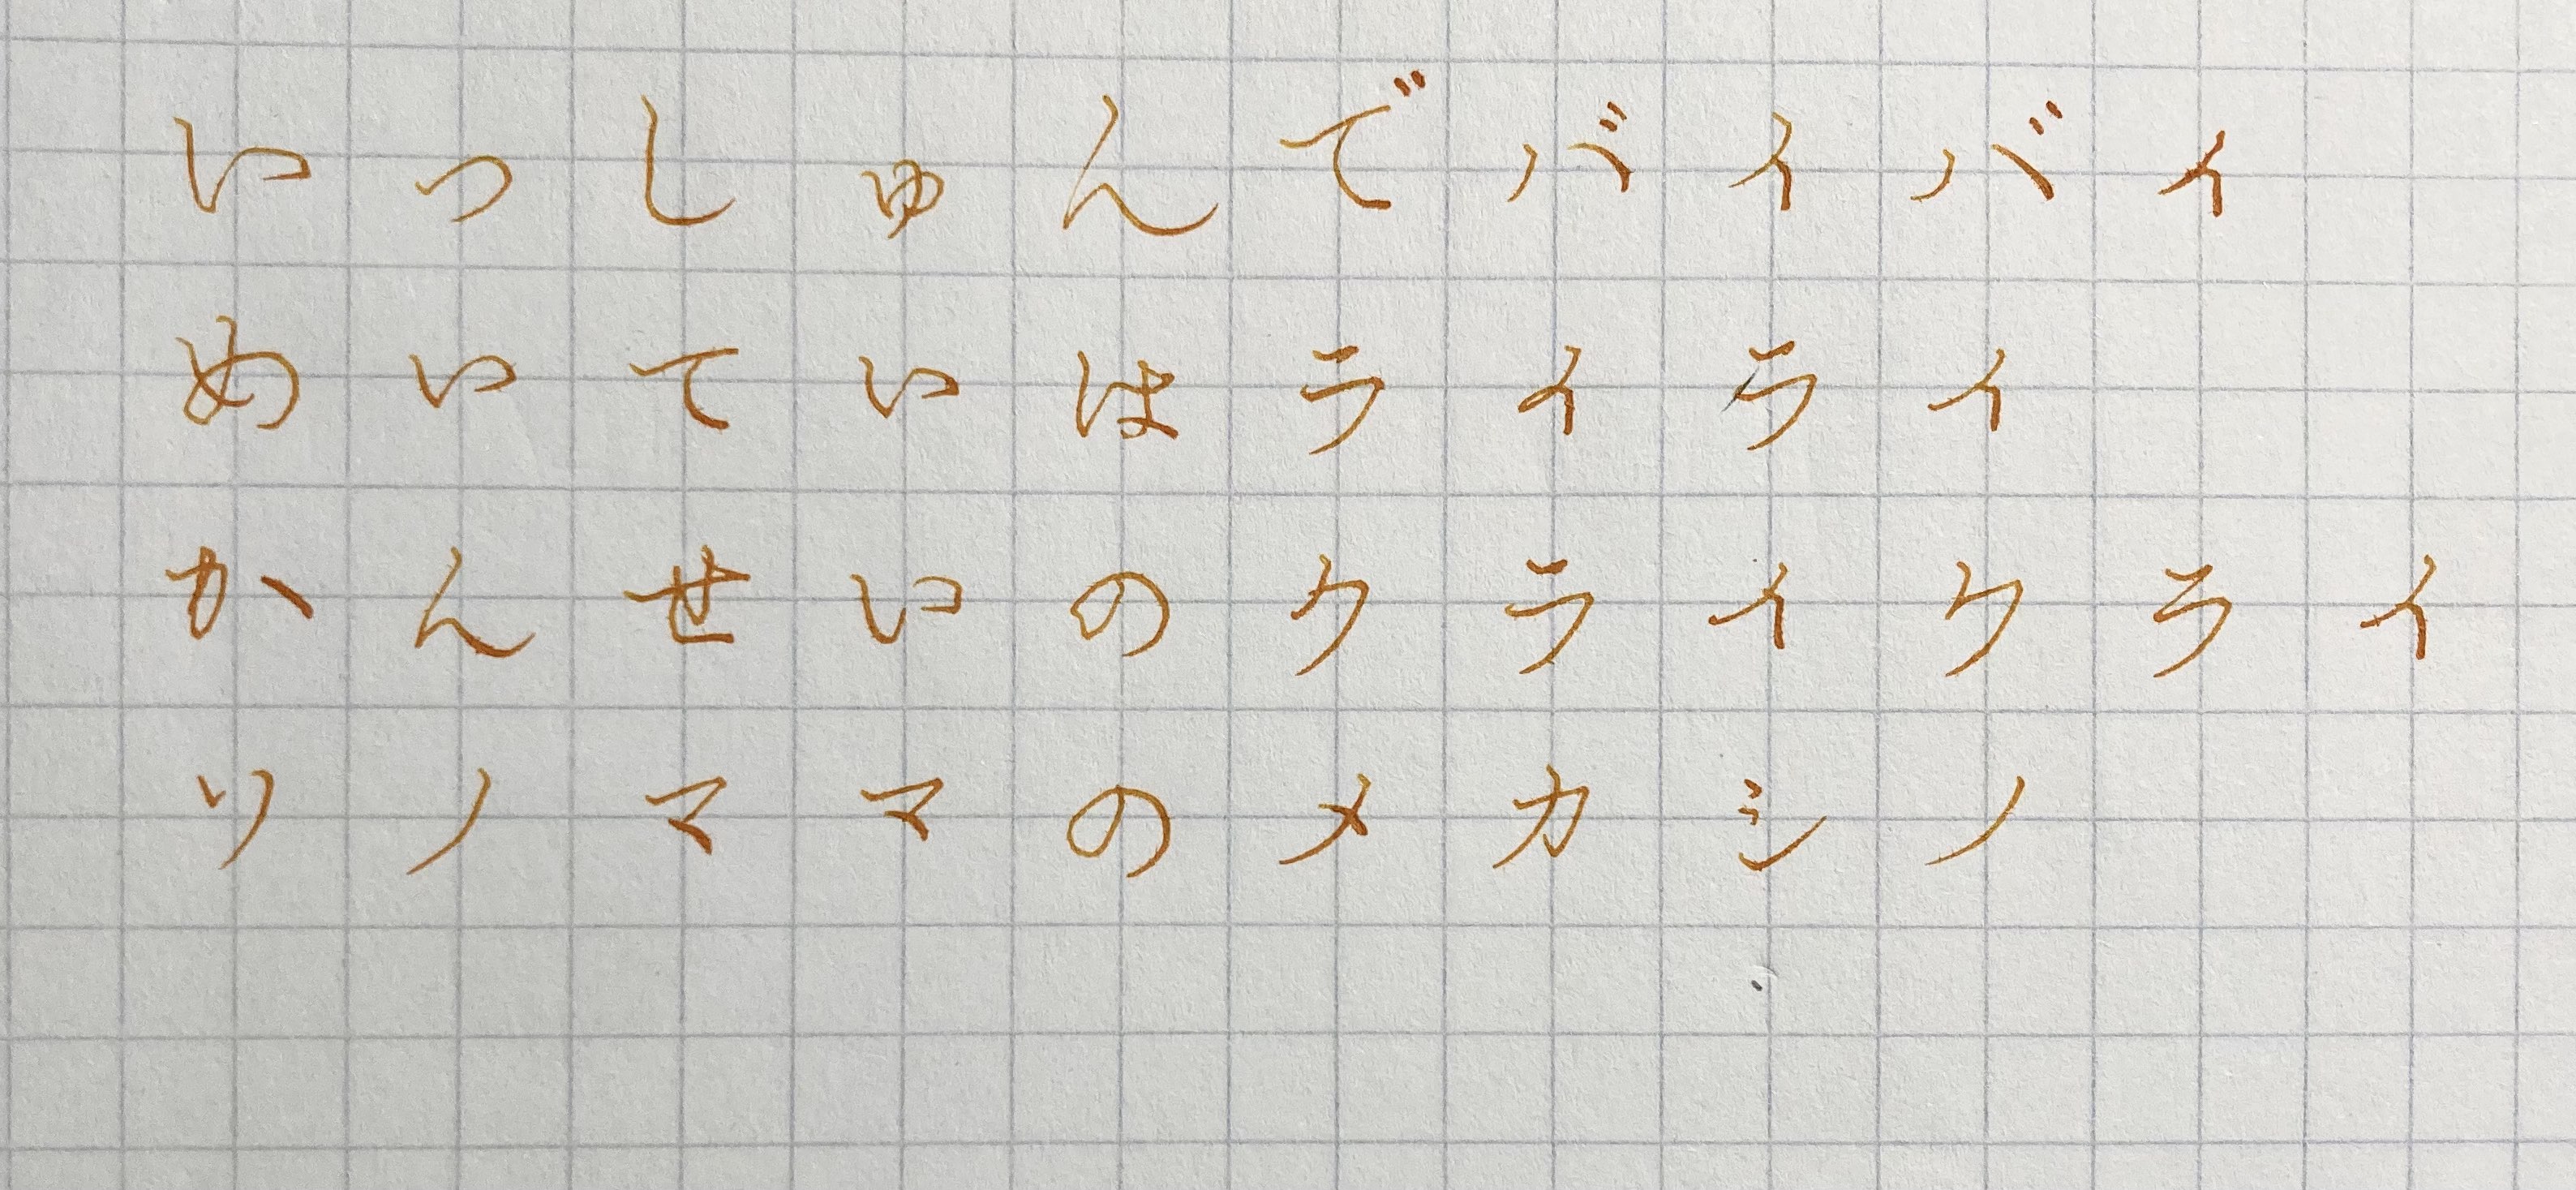 いっしゅんでバイバイ
めいていはライライ
かんせいのクライクライ
ソノママのメカシノ